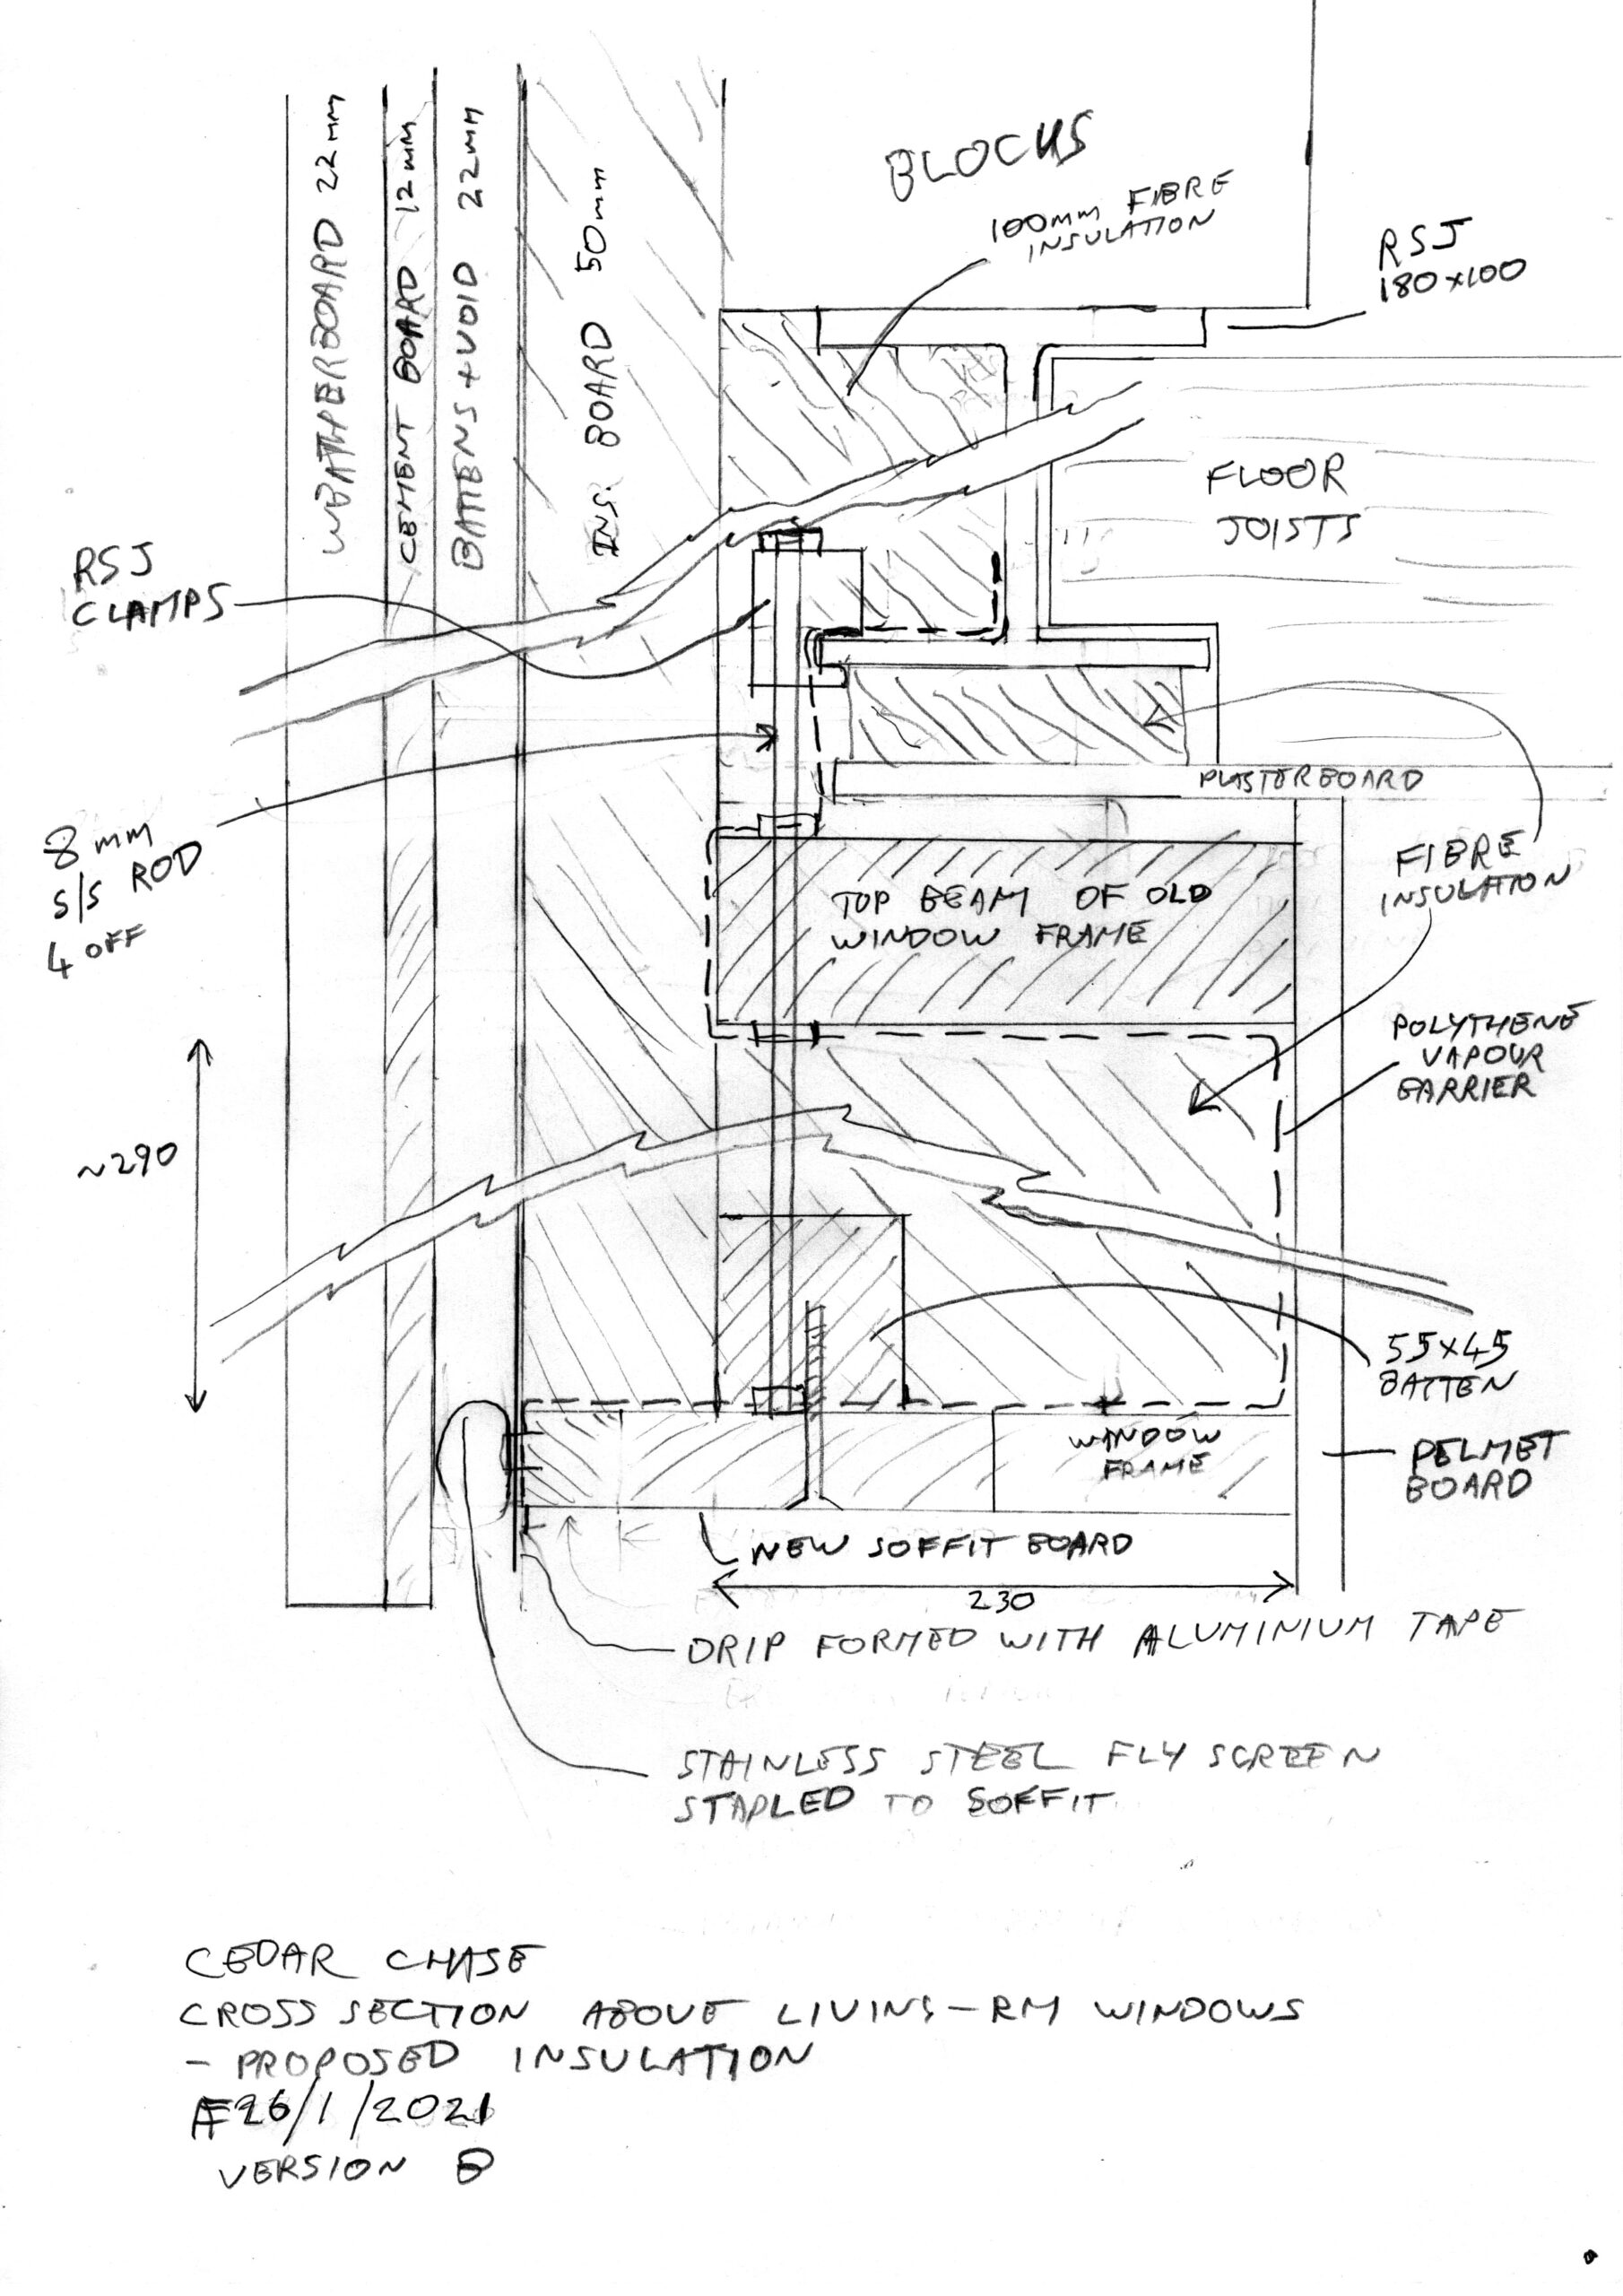 WEATHERBOARD 22mm
CEMENT BOARD 12mm
BATTENS + VOID 22mm
INS. BOARD 50mm
BLOCKS
100mm FIBRE
INSULATION
RSJ
180 x 100
FLOOR
JOISTS
RSJ
CLAMPS
PLASTERBOARD
8 mm
S/S ROD
4 OFF
TOP BEAM OF OLD
WINDOW FRAME
FIBRE
INSULATION
POLYTHENE
VAPOUR
BARRIER
~290
55x45
BATTEN
WINDOW
FRAME
PELMET
BOARD
NEW SOFFIT BOARD
230
DRIP FORMED WITH ALUMINIUM TAPE
STAINLESS STEEL FLY SCREEN
STAPLED TO SOFFIT
CEDAR CHASE
CROSS SECTION ABOVE LIVING-RM WINDOWS
- PROPOSED INSULATION
26/1/2021
VERSION